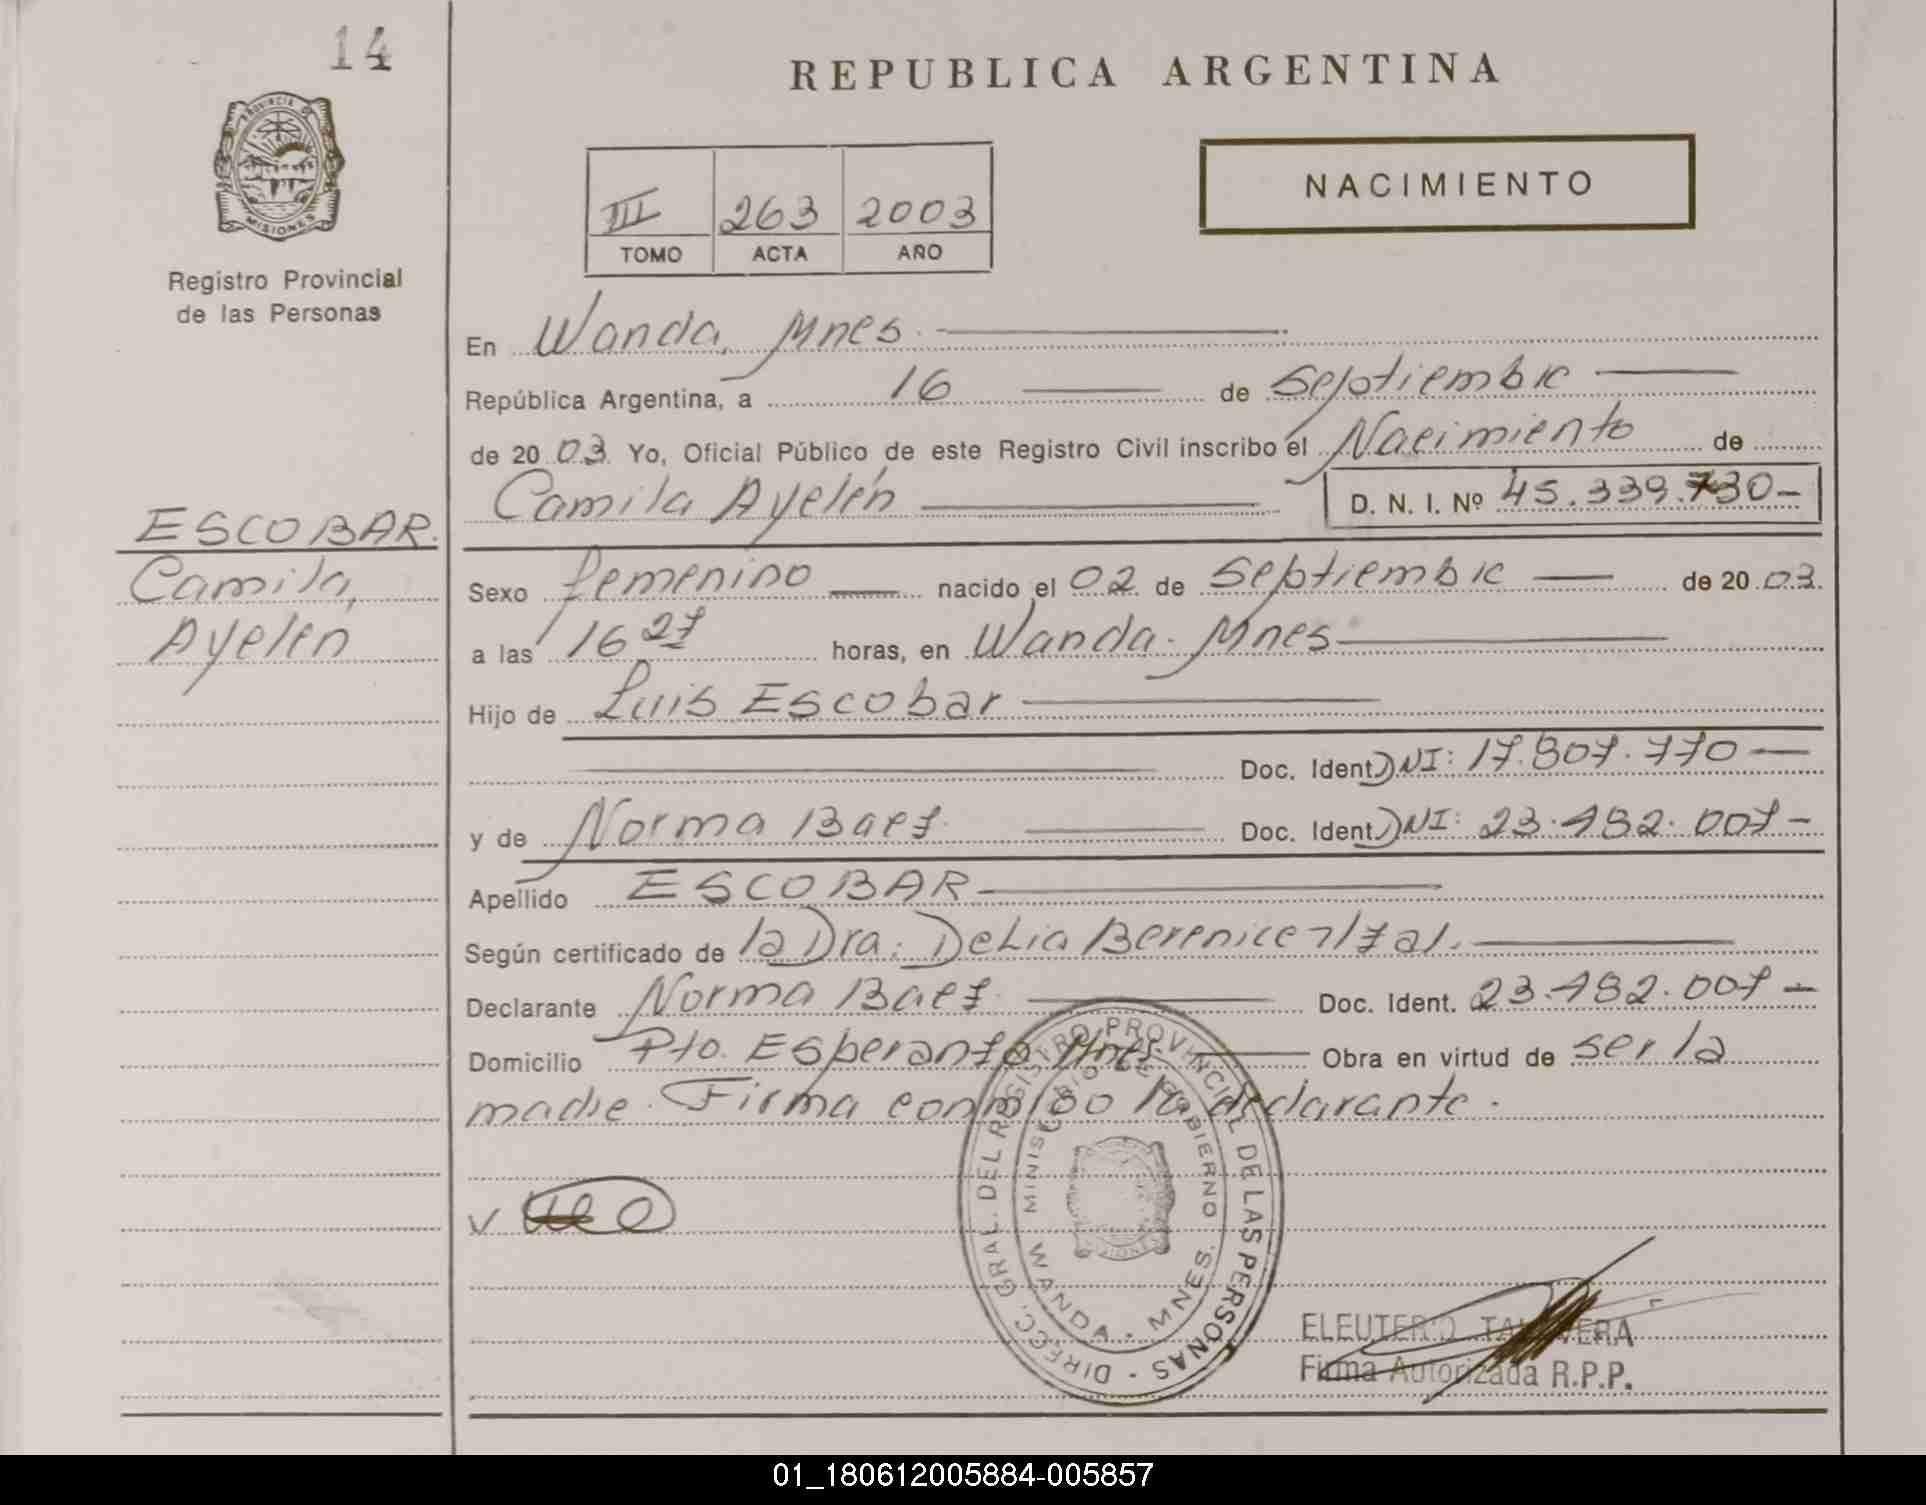 14
PROVINCIA DE
MISIONES
Registro Provincial
de las Personas
REPUBLICA ARGENTINA
NACIMIENTO
III 263 2003
TOMO ACTA AÑO
En Wanda, Mnes.
República Argentina, a 16 de Septiembre
de 2003 Yo, Oficial Público de este Registro Civil inscribo el Nacimiento de
Camila Ayelén D. N. I. Nº 45.339.730-
ESCOBAR.
Camila,
Ayelén
Sexo femenino nacido el 02 de Septiembre de 2003.
a las 16 27 horas, en Wanda. Mnes
Hijo de Luis Escobar
Doc. Ident DNI: 17.807.770
y de Norma Baez Doc. Ident DNI: 23.482.007-
Apellido ESCOBAR
Según certificado de la Dra. Delia Berenice
Declarante Norma Baez Doc. Ident. 23.482.007-
Domicilio Pto. Esperanza Mnes Obra en virtud de ser la
madre. Firma conmigo la declarante.
DIRECC. GRAL. DEL REGISTRO PROVINCIAL DE LAS PERSONAS -
MINISTERIO DE GOBIERNO
WANDA - MNES.
ELEUTERIO TALAVERA
Firma Autorizada R.P.P.
01_180612005884-005857